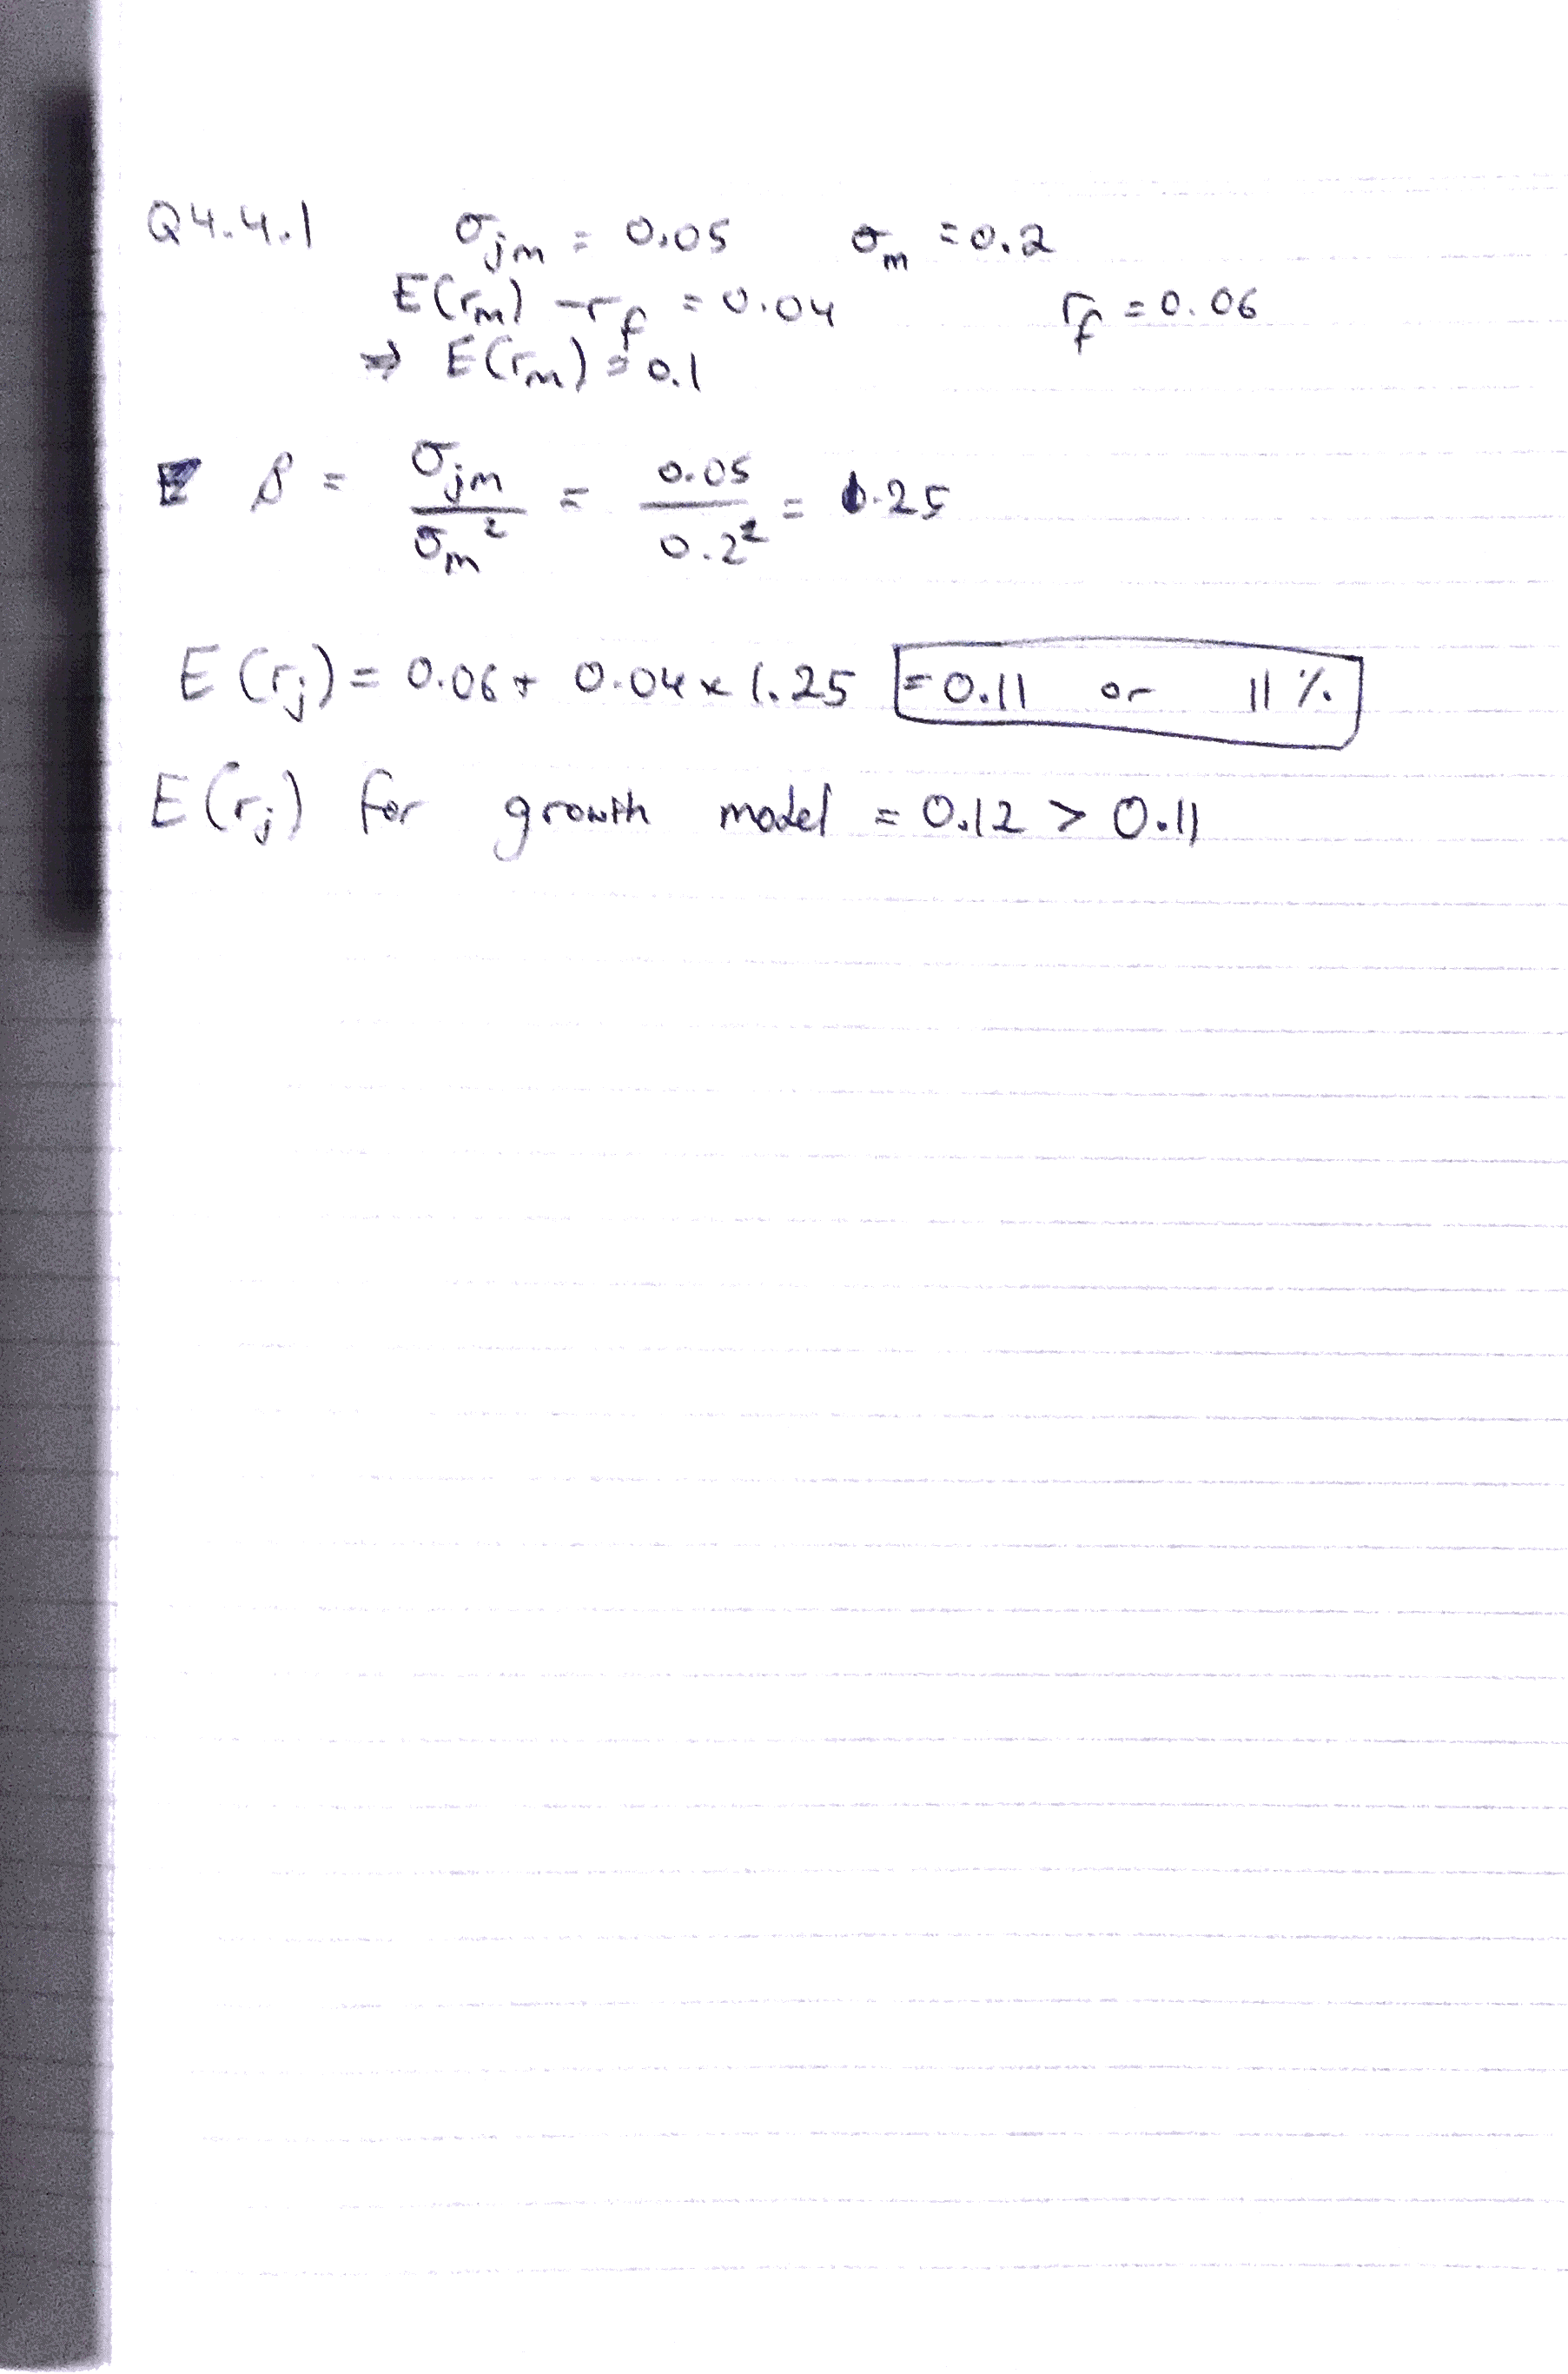 Q4.4.1 σjm = 0.05 σm = 0.2
E(rm) - rf = 0.04 rf = 0.06
⇒ E(rm) = 0.1
β = σjm / σm² = 0.05 / 0.2² = 1.25
E(rj) = 0.06 + 0.04 × 1.25 = 0.11 or 11%
E(rj) for growth model = 0.12 > 0.11